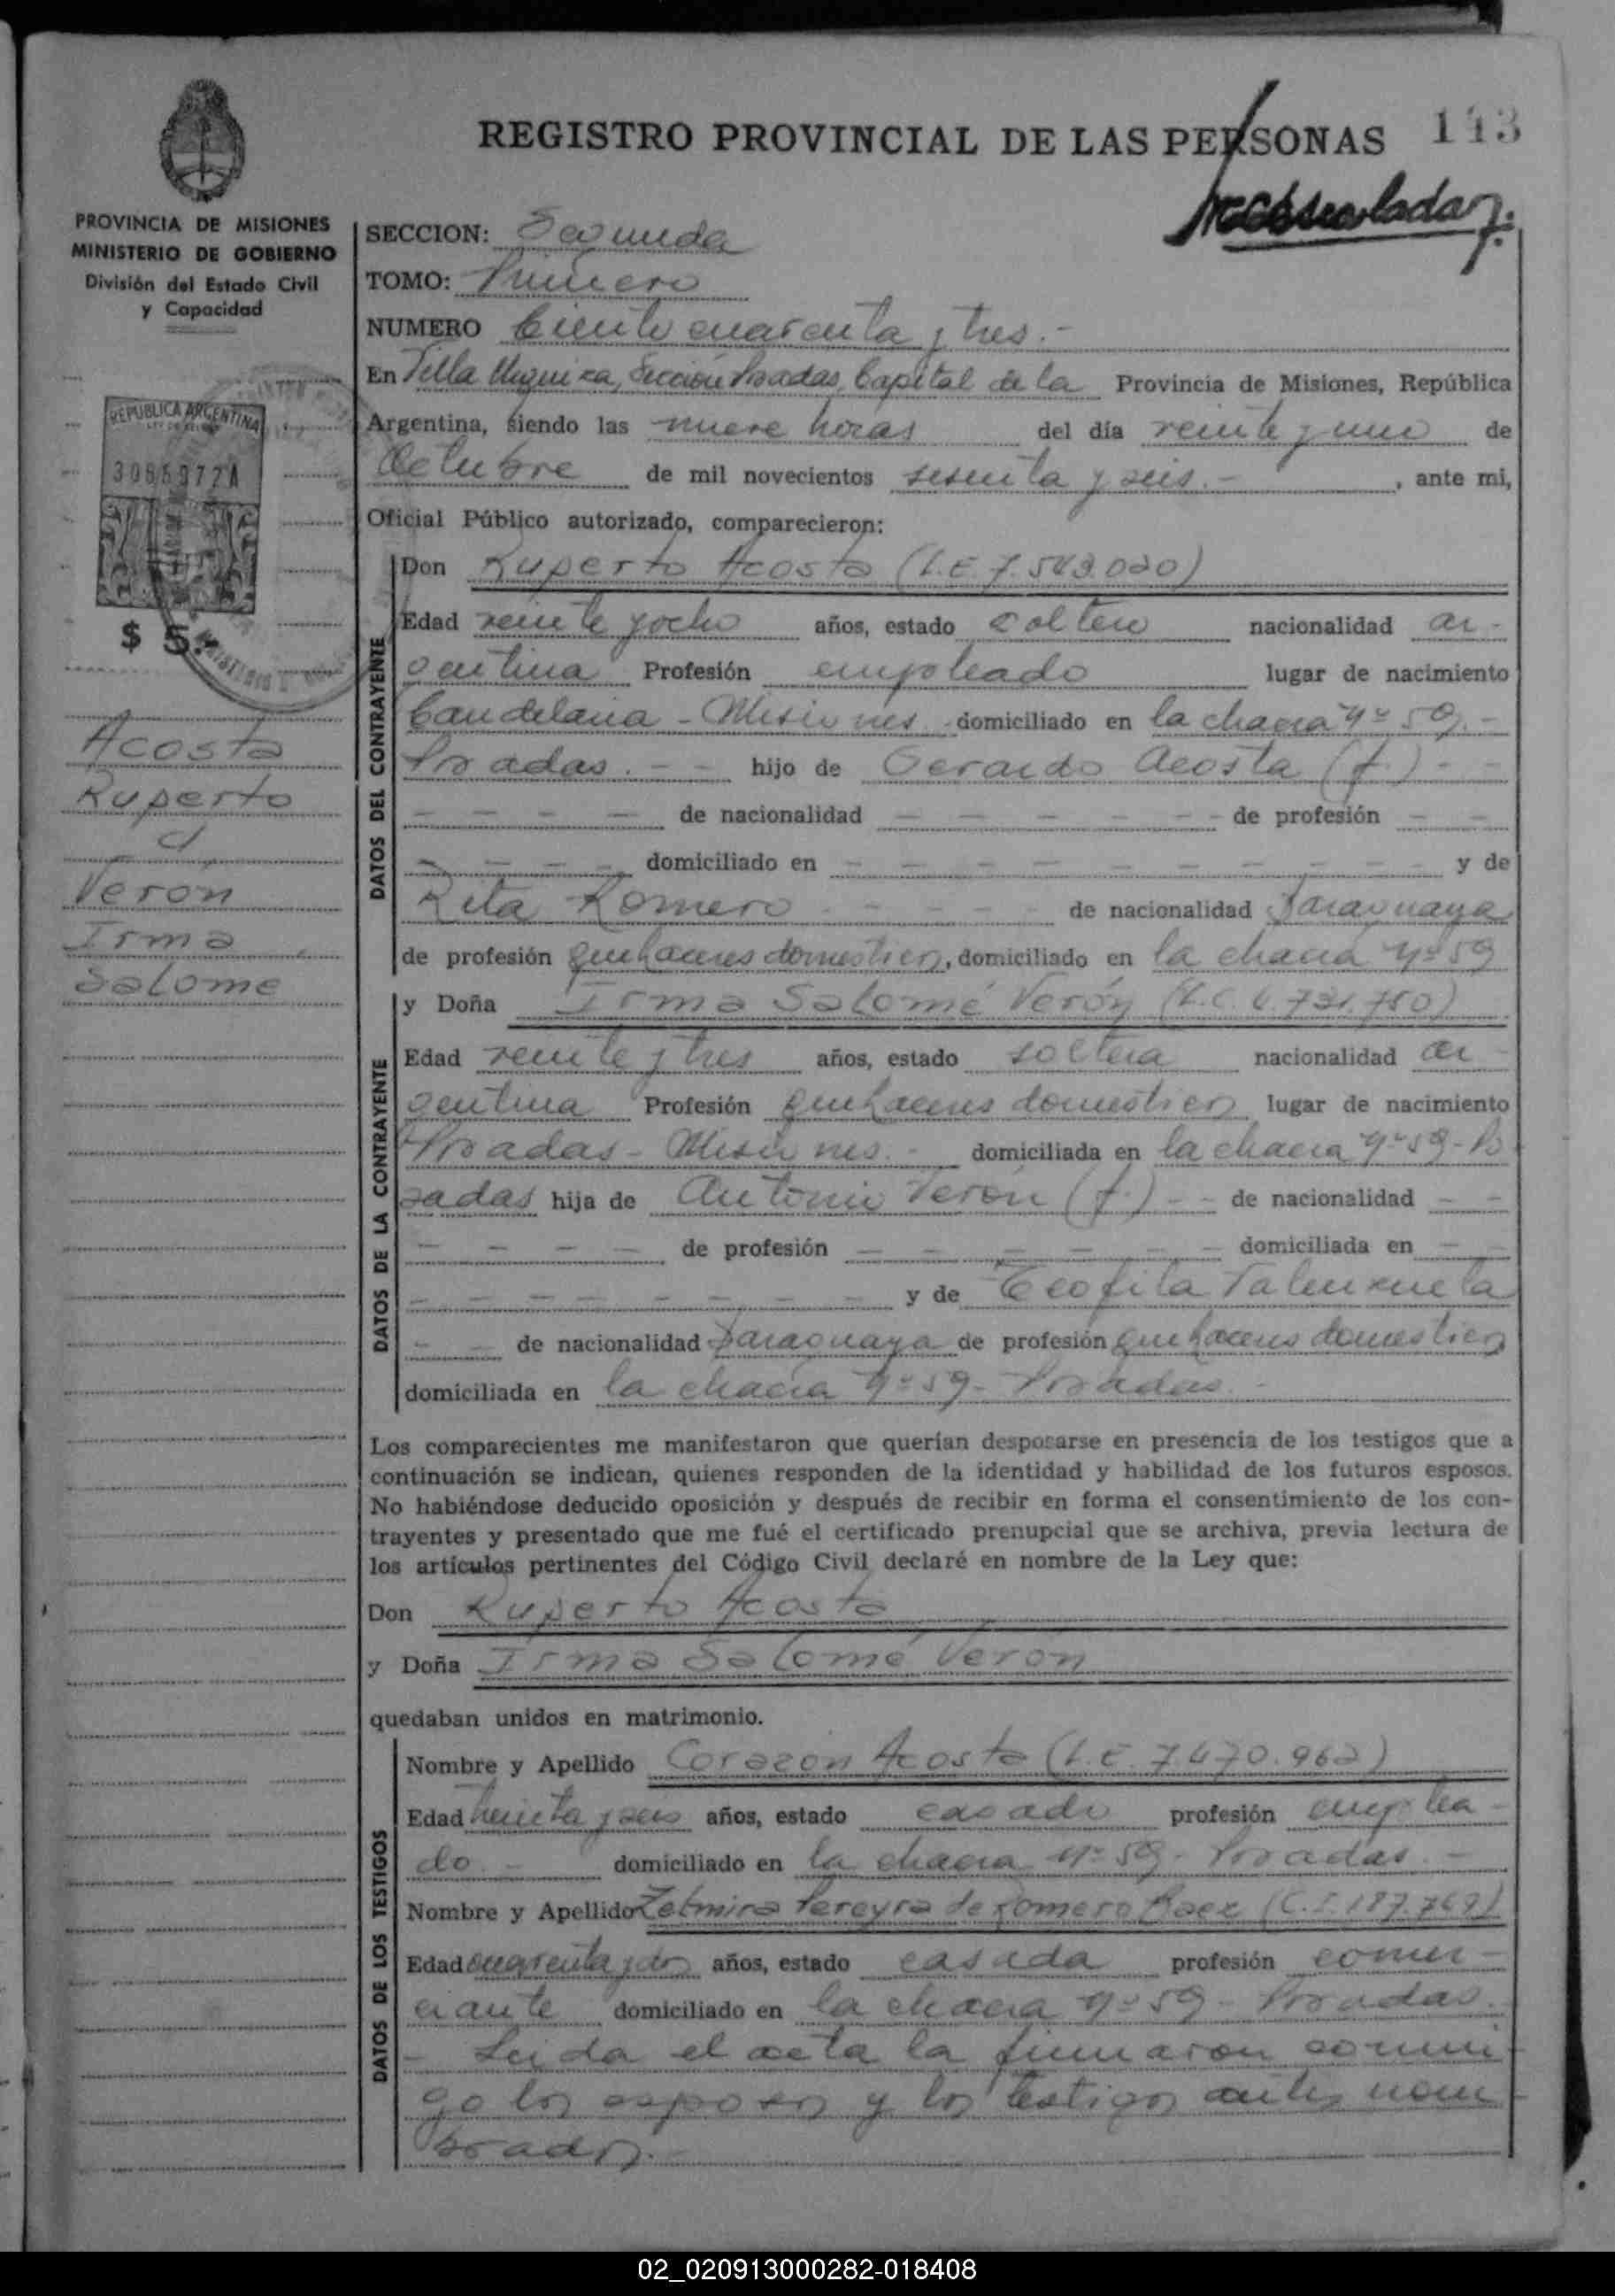 REGISTRO PROVINCIAL DE LAS PERSONAS 143
PROVINCIA DE MISIONES
MINISTERIO DE GOBIERNO
División del Estado Civil
y Capacidad
REPUBLICA ARGENTINA
3085972A
$ 5.-
Acosta
Ruperto
c/
Verón
Irma
Salomé
SECCION: Segunda
TOMO: Primero
NUMERO Ciento cuarenta y tres.-
En Villa Urquiza, Sección Posadas, Capital de la Provincia de Misiones, República
Argentina, siendo las nueve horas del día veinte y uno de
Octubre de mil novecientos sesenta y seis.- , ante mi,
Oficial Público autorizado, comparecieron:
DATOS DEL CONTRAYENTE
Don Ruperto Acosta (L.E. 7.543.020)
Edad veinte y ocho años, estado soltero nacionalidad ar-
gentina Profesión empleado lugar de nacimiento
Candelaria - Misiones.- domiciliado en la chacra Nº 59.-
Posadas. - - hijo de Gerardo Acosta (f.) - -
- - - - de nacionalidad - - - - - - de profesión - -
- - - - domiciliado en - - - - - - - - - - y de
Rita Romero - - - - - de nacionalidad paraguaya
de profesión quehaceres domésticos, domiciliado en la chacra Nº 59
DATOS DE LA CONTRAYENTE
y Doña Irma Salomé Verón (L.C. 4.731.750)
Edad veinte y tres años, estado soltera nacionalidad ar-
gentina Profesión quehaceres domésticos lugar de nacimiento
Posadas - Misiones.- domiciliada en la chacra Nº 59 - Po
sadas hija de Antonio Verón (f.) - - de nacionalidad - -
- - - - de profesión - - - - - - domiciliada en - -
- - - - - - - y de Teofila Valenzuela
- - de nacionalidad paraguaya de profesión quehaceres domésticos
domiciliada en la chacra Nº 59 - Posadas.-
Los comparecientes me manifestaron que querían desposarse en presencia de los testigos que a
continuación se indican, quienes responden de la identidad y habilidad de los futuros esposos.
No habiéndose deducido oposición y después de recibir en forma el consentimiento de los con-
trayentes y presentado que me fué el certificado prenupcial que se archiva, previa lectura de
los artículos pertinentes del Código Civil declaré en nombre de la Ley que:
Don Ruperto Acosta
y Doña Irma Salomé Verón
quedaban unidos en matrimonio.
DATOS DE LOS TESTIGOS
Nombre y Apellido Corazón Acosta (L.E. 7.470.962)
Edad treinta y seis años, estado casado profesión emplea-
do.- domiciliado en la chacra Nº 59 - Posadas.-
Nombre y Apellido Zelmira Pereyra de Romero Baez (C.I. 187.769)
Edad cuarenta y dos años, estado casada profesión comer-
ciante domiciliado en la chacra Nº 59 - Posadas.
- Leida el acta la firmaron conmi-
go los esposos y los testigos antes nom-
brados.-
02_020913000282-018408